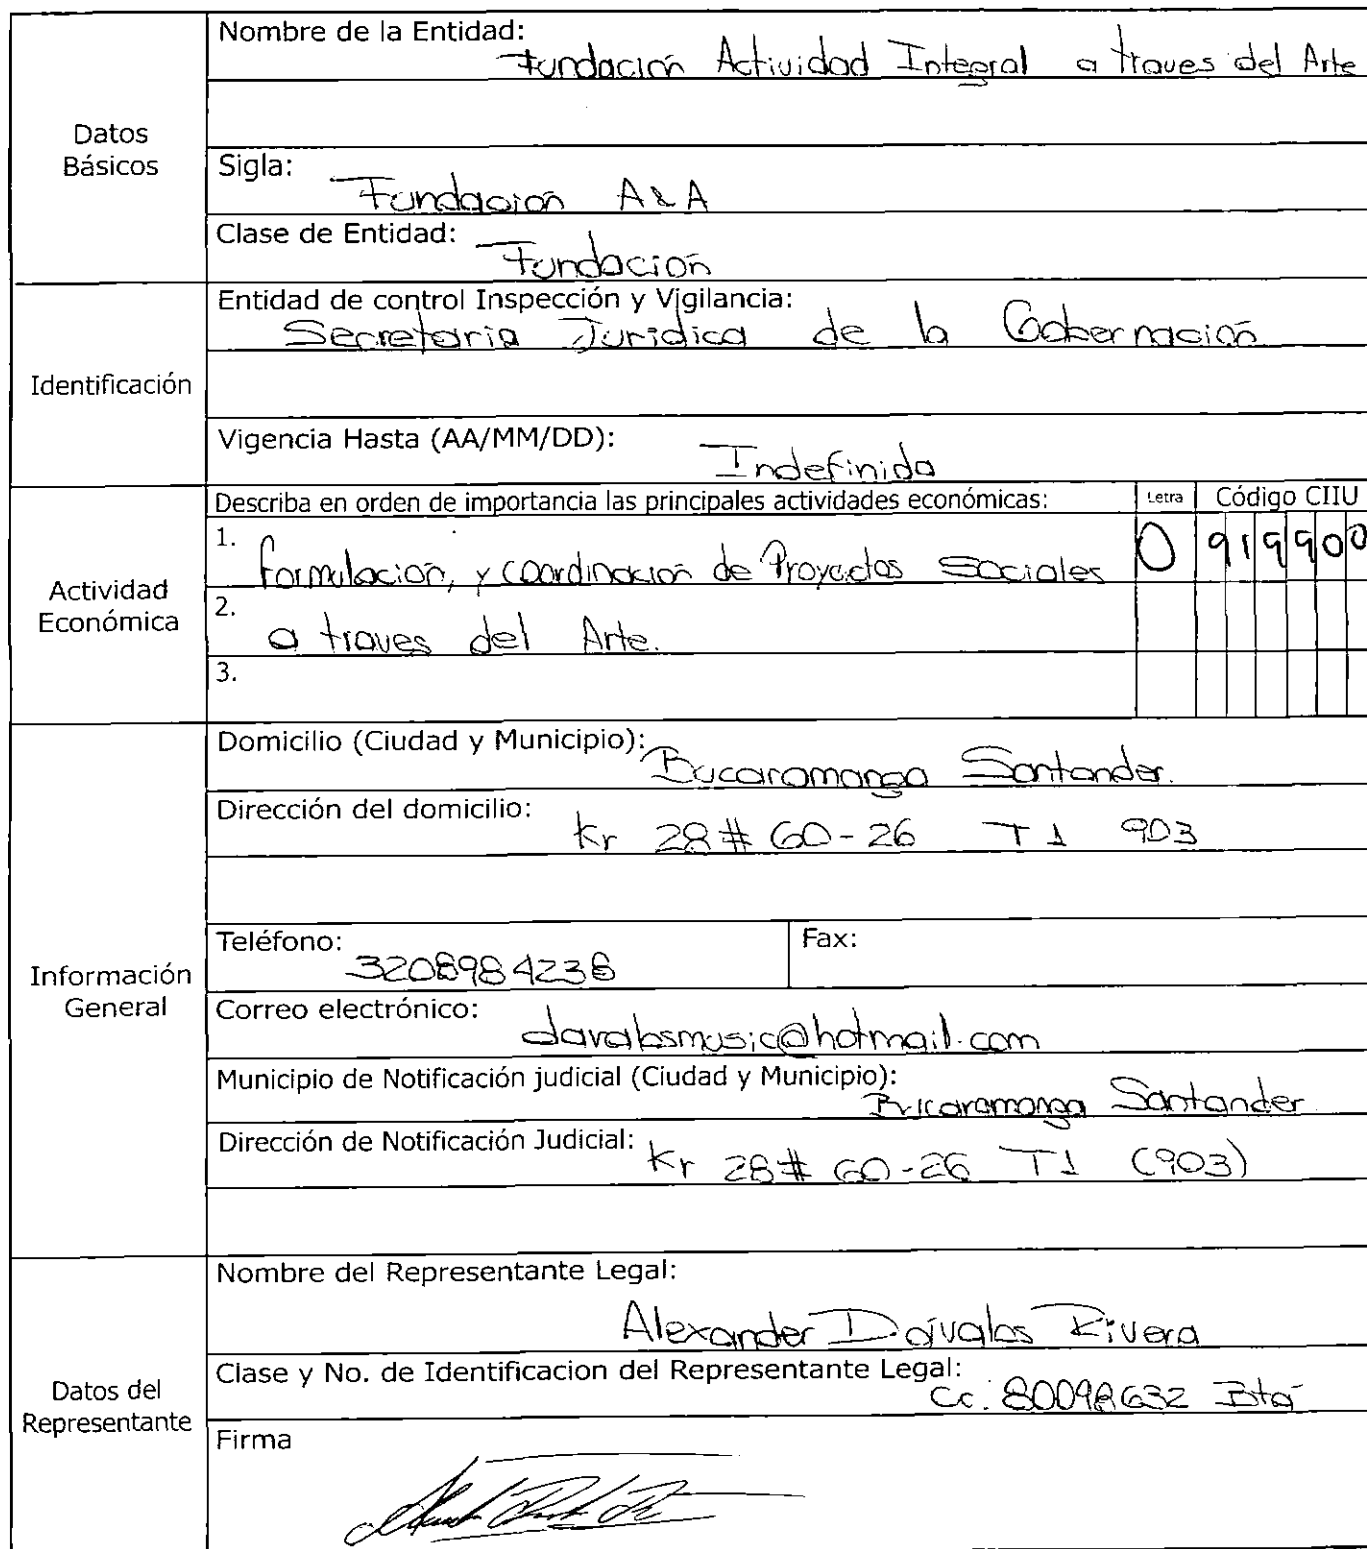 Datos Básicos
Nombre de la Entidad:
Fundación Actividad Integral a traves del Arte
Sigla:
Fundación A&A
Clase de Entidad:
Fundación
Identificación
Entidad de control Inspección y Vigilancia:
Secretaria Juridica de la Gobernación
Vigencia Hasta (AA/MM/DD):
Indefinida
Actividad Económica
Describa en orden de importancia las principales actividades económicas: Letra Código CIIU
1. formulación, y coordinación de Proyectos Sociales O 919900
2. a traves del Arte.
3.
Información General
Domicilio (Ciudad y Municipio): Bucaramanga Santander.
Dirección del domicilio: Kr 28 # 60-26 T 1 903
Teléfono: 3208984238 Fax:
Correo electrónico: davalosmusic@hotmail.com
Municipio de Notificación judicial (Ciudad y Municipio):
Bucaramanga Santander
Dirección de Notificación Judicial: Kr 28 # 60-26 T1 (903)
Datos del Representante
Nombre del Representante Legal:
Alexander Dávalos Rivera
Clase y No. de Identificacion del Representante Legal:
Cc. 80098632 Btá
Firma